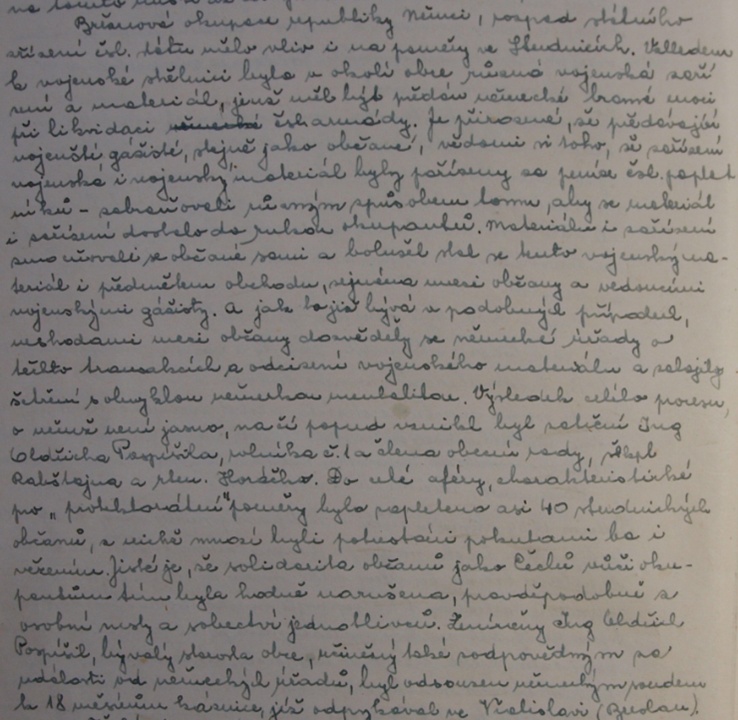 Březnová okupace republiky Němci, rozpad státního
zřízení čsl. státu mělo vliv i na poměry ve Studnicích. Vzhledem
k vojenské střelnici byla v okolí obce různá vojenská zaří
zení a materiál, jenž měl být předán německé branné moci
při likvidaci německé čsl. armády. Je přirozené, že předávající
vojenští gážisté, stejně jako občané, vědomi si toho, že zařízení
vojenská i vojenský materiál byly pořízeny za peníze čsl. poplat
níků – zabraňovali různým způsobem tomu, aby se materiál
i zařízení dostalo do rukou okupantů. Materiálu i zařízení
zmocňovali se občané sami a bohužel stal se tento vojenský ma-
teriál i předmětem obchodu, zejména mezi občany a vedoucími
vojenskými gážisty. A jak to již bývá v podobných případech,
neshodami mezi občany dozvěděly se německé úřady o
těchto transakcích a odcizení vojenského materiálu a zahájily
šetření s obvyklou německou mentalitou. Výsledek celého procesu,
o němž není jasno, na čí popud vznikl byl zatčení Ing
Oldřicha Pospíšila, rolníka č. 1 a člena obecní rady, škpt
Rabštejna a rtm. Horáčka. Do celé aféry, charakteristické
pro „protektorátní" poměry bylo zapleteno asi 40 studnických
občanů, z nichž mnozí byli potrestáni pokutami ba i
vězením. Jisté je, že solidarita občanů jako Čechů vůči oku-
pantům tím byla hodně narušena, pravděpodobně z
osobní msty a sobectví jednotlivců. Zmíněný Ing Oldřich
Pospíšil, bývalý starosta obce, učiněný také zodpovědným za
události od německých úřadů, byl odsouzen německým soudem
k 18 měsícům káznice, jíž odpykával ve Vratislavi (Breslau).